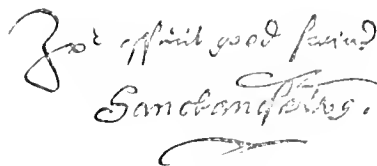 Yor assurit good freind
Sanctandrews.